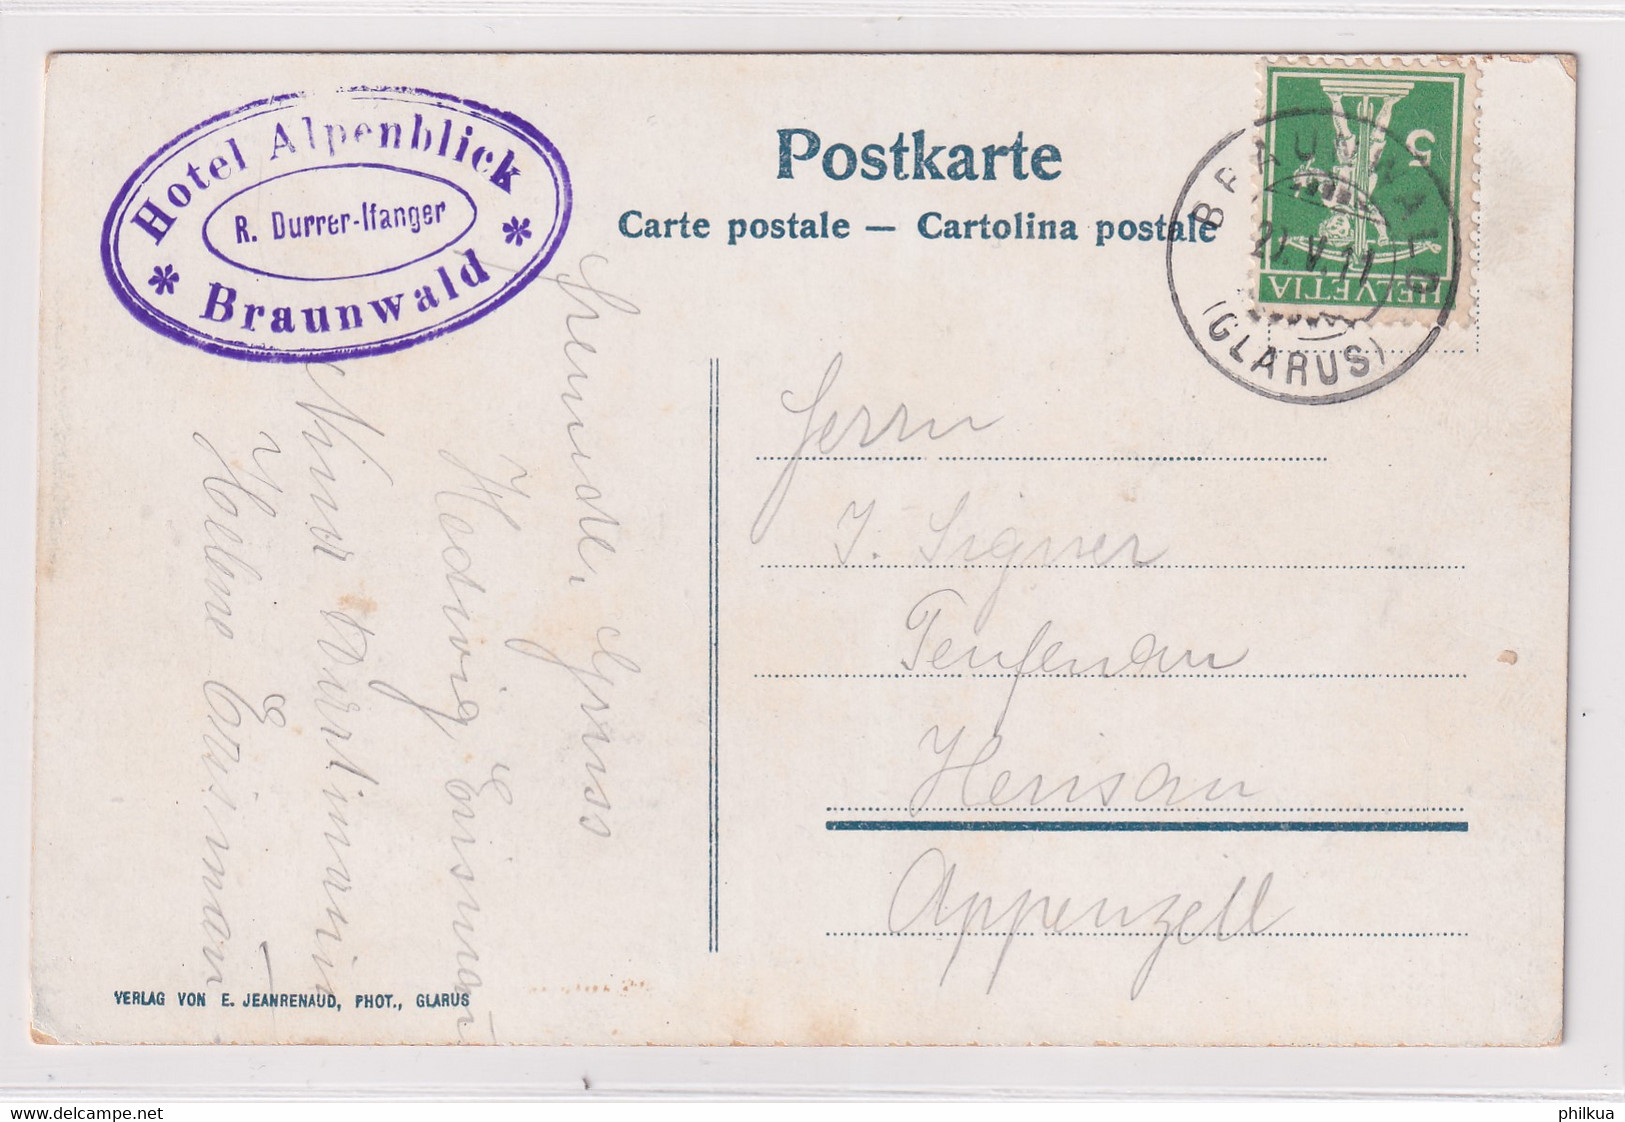 Hotel Alpenblick
R. Durrer-Ifanger
* Braunwald *
Postkarte
Carte postale — Cartolina postale
5
HELVETIA
BRAUNWALD
V.11
(GLARUS)
Freundl. Gruss
Hedwig Eisimann
Nina
Helene Eisimann
Herrn
J. Signer
Teufenau
Herisau
Appenzell
VERLAG VON E. JEANRENAUD, PHOT., GLARUS
www.delcampe.net
philkua